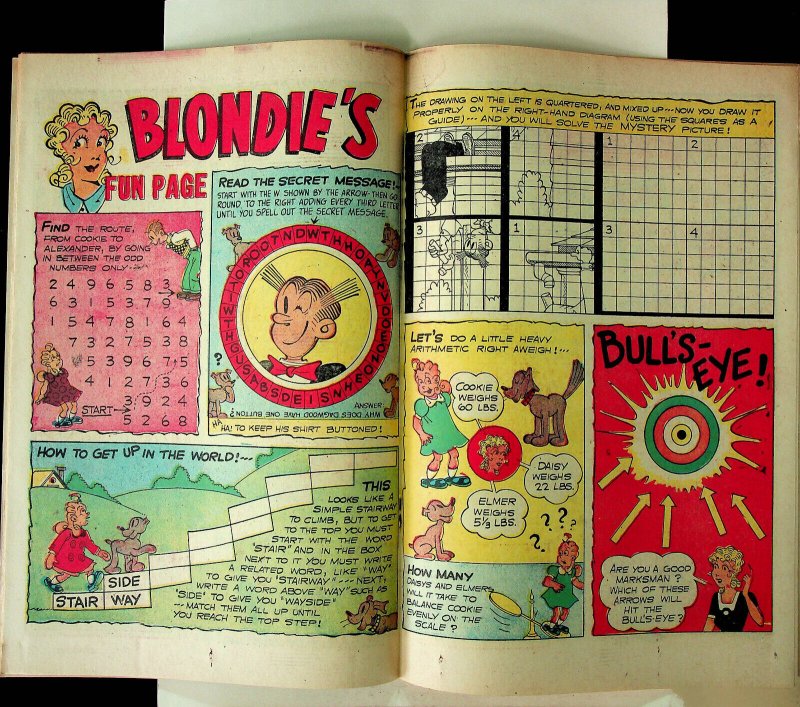 BLONDIE'S
FUN PAGE
READ THE SECRET MESSAGE!
START WITH THE W SHOWN BY THE ARROW- THEN GO
ROUND TO THE RIGHT ADDING EVERY THIRD LETTER
UNTIL YOU SPELL OUT THE SECRET MESSAGE.
?
ANSWER:
WHY DOES DAGWOOD HAVE ONE BUTTON?
HA HA! TO KEEP HIS SHIRT BUTTONED!
FIND THE ROUTE,
FROM COOKIE TO
ALEXANDER, BY GOING
IN BETWEEN THE ODD
NUMBERS ONLY---
2 4 9 6 5 8 3
6 3 1 5 3 7 9
1 5 4 7 8 1 6 4
7 3 2 7 5 3 8
5 3 9 6 7 5
4 1 2 7 3 6
3 9 2 4
START→ 5 2 6 8
HOW TO GET UP IN THE WORLD!---
THIS
LOOKS LIKE A
SIMPLE STAIRWAY
TO CLIMB, BUT TO GET
TO THE TOP YOU MUST
START WITH THE WORD
"STAIR" AND IN THE BOX
NEXT TO IT YOU MUST WRITE
A RELATED WORD, LIKE "WAY"
TO GIVE YOU "STAIRWAY" --- NEXT,
WRITE A WORD ABOVE "WAY" SUCH AS
"SIDE" TO GIVE YOU "WAYSIDE"
--- MATCH THEM ALL UP UNTIL
YOU REACH THE TOP STEP!
SIDE
STAIR WAY
THE DRAWING ON THE LEFT IS QUARTERED, AND MIXED UP---NOW YOU DRAW IT
PROPERLY ON THE RIGHT-HAND DIAGRAM (USING THE SQUARES AS A
GUIDE)--- AND YOU WILL SOLVE THE MYSTERY PICTURE!
2 4 1 2
3 1 3 4
LET'S DO A LITLE HEAVY
ARITHMETIC RIGHT AWEIGH!---
COOKIE
WEIGHS
60 LBS.
DAISY
WEIGHS
22 LBS.
ELMER
WEIGHS
5⅓ LBS.
? ? ? ?
HOW MANY
DAISYS AND ELMERS
WILL IT TAKE TO
BALANCE COOKIE
EVENLY ON THE
SCALE?
BULL'S-
EYE!
ARE YOU A GOOD
MARKSMAN?
WHICH OF THESE
ARROWS WILL
HIT THE
BULL'S-EYE?